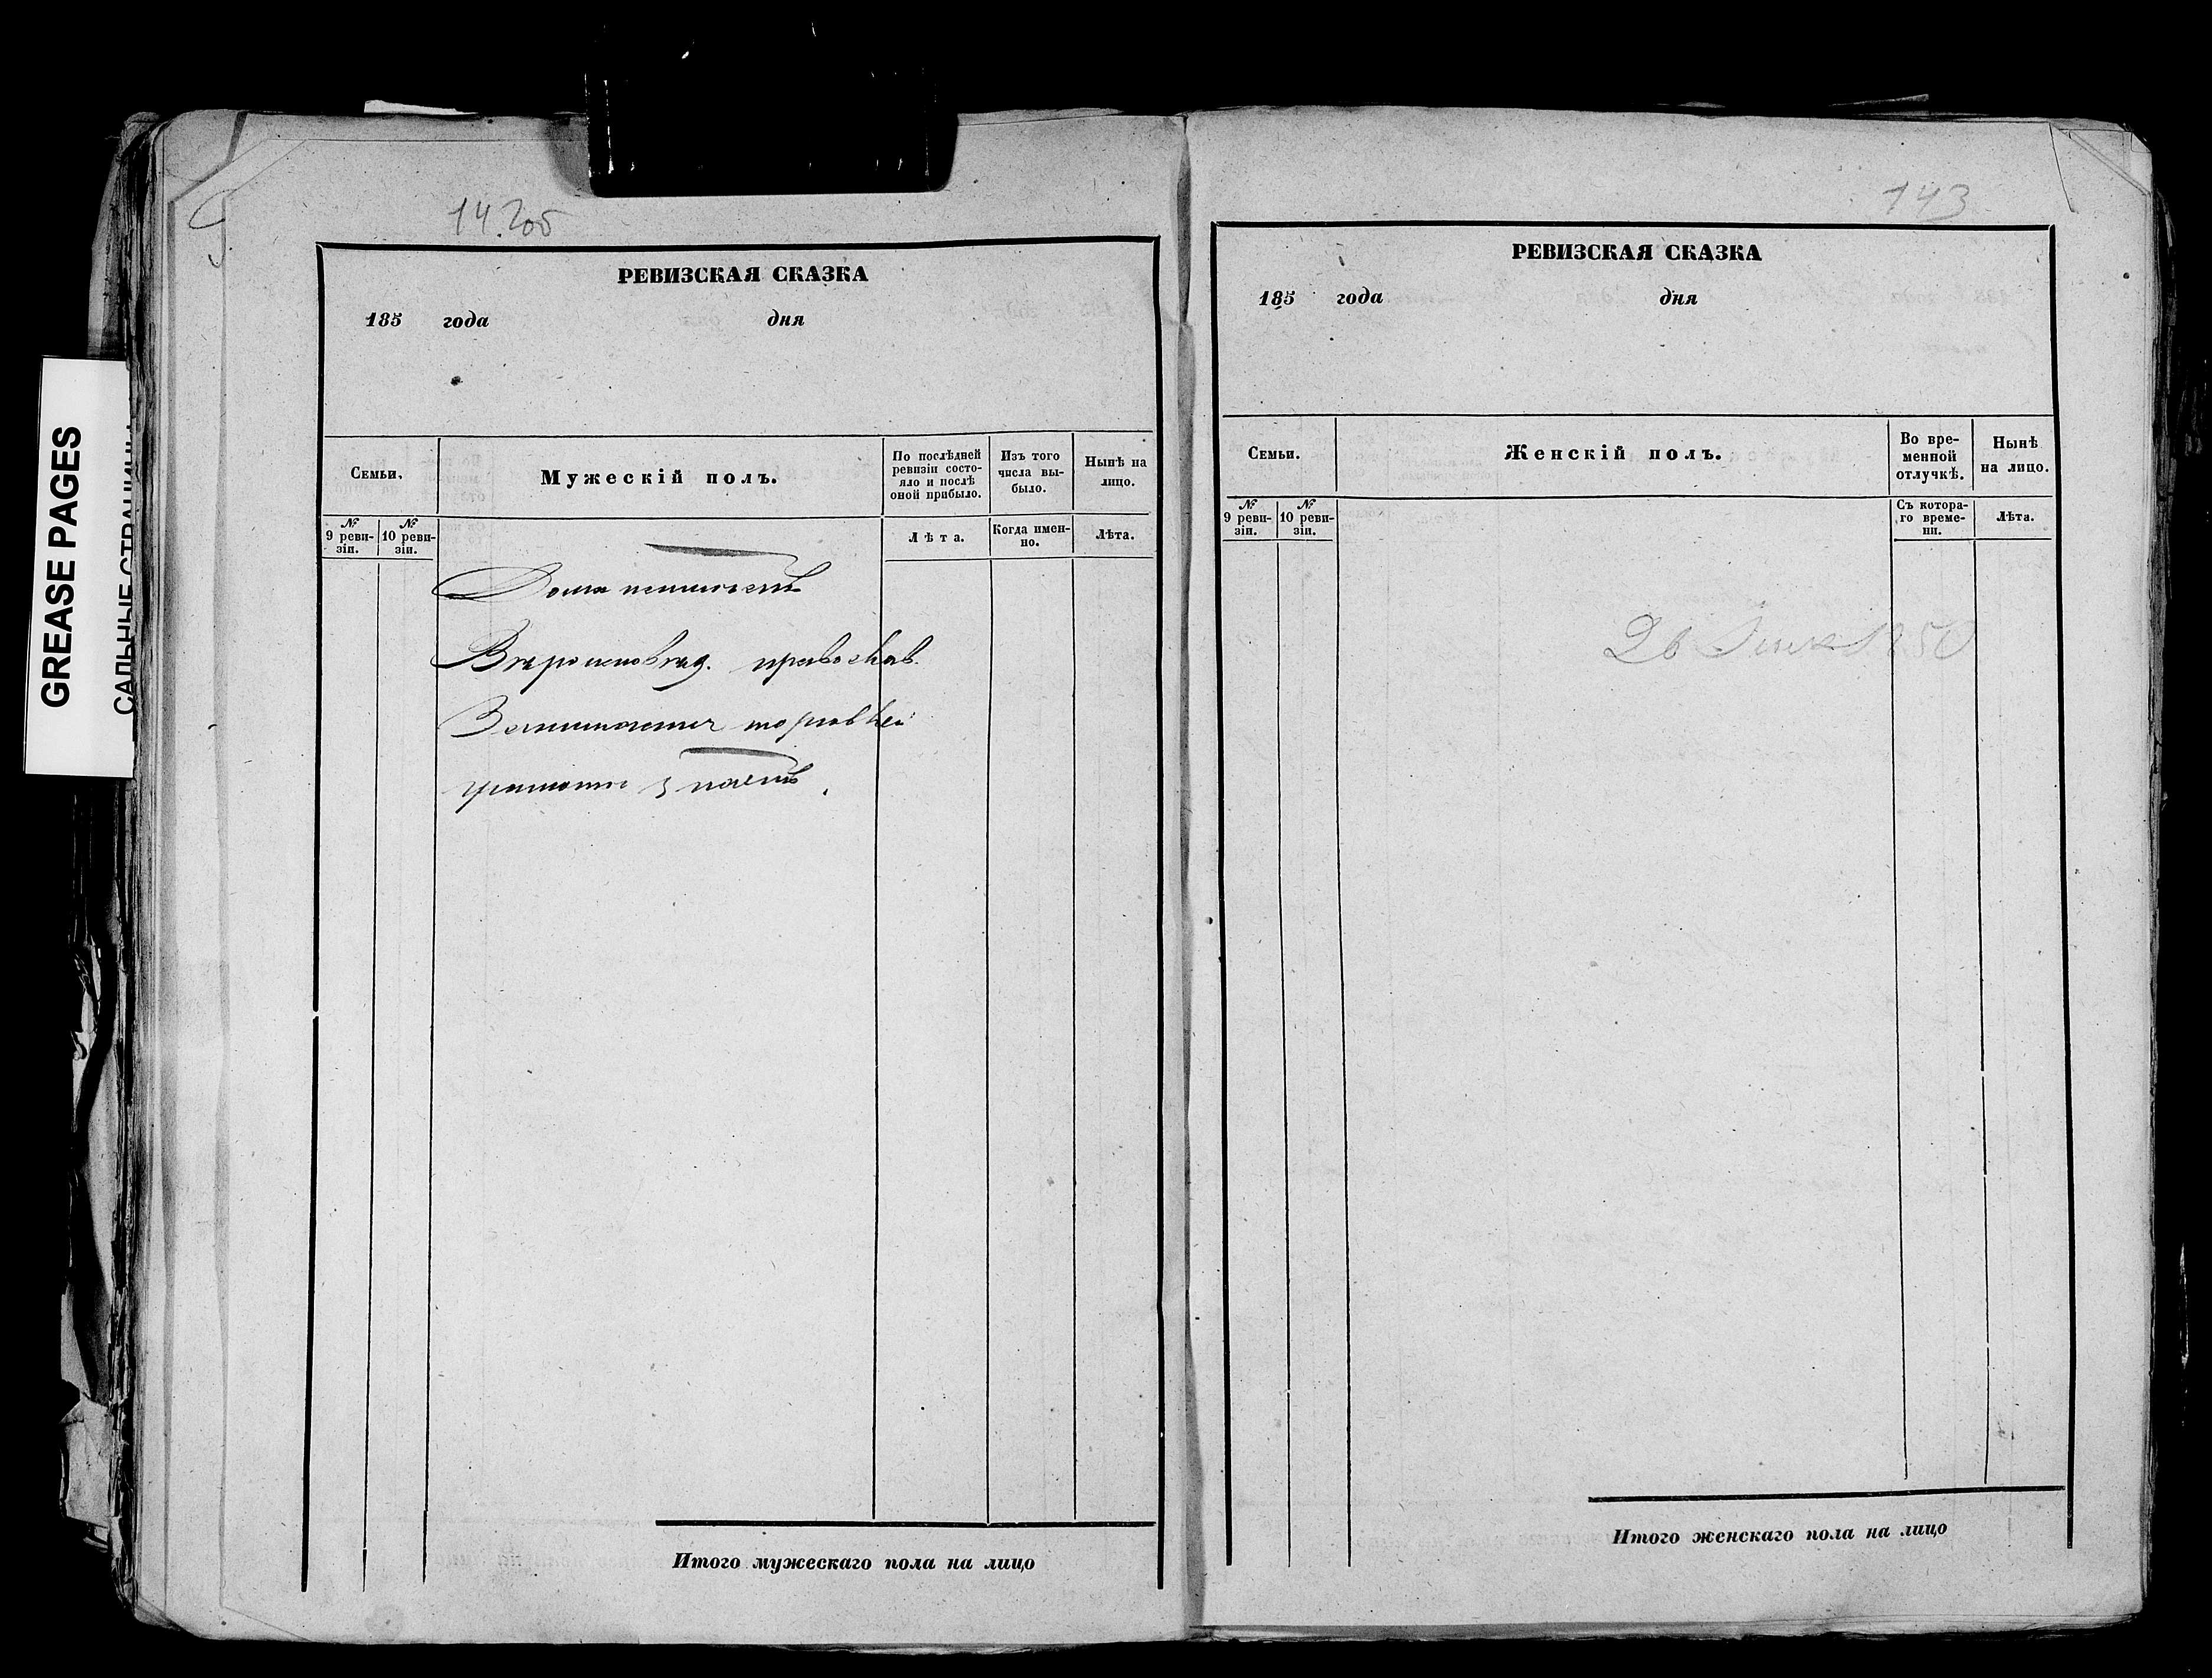 GREASE PAGES
САЛЬНЫЕ СТРАНИЦЫ
142об
РЕВИЗСКАЯ СКАЗКА
185 года дня
Семьи.
Мужескій полъ.
По послѣдней
ревизіи состо-
яло и послѣ
оной прибыло.
Изъ того
числа вы-
было.
Нынѣ на
лицо.
№
9 реви-
зіи.
№
10 реви-
зіи.
Лѣта.
Когда имен-
но.
Лѣта.
Дома неимѣетъ
Вѣроисповѣд. православ.
Занимается торговлей
грамоте знаетъ
Итого мужескаго пола на лицо
143
РЕВИЗСКАЯ СКАЗКА
185 года дня
Семьи.
Женскій полъ.
Во вре-
менной
отлучкѣ.
Нынѣ
на лицо.
№
9 реви-
зіи.
№
10 реви-
зіи.
Съ котора-
го време-
ни.
Лѣта.
26 1850
Итого женскаго пола на лицо